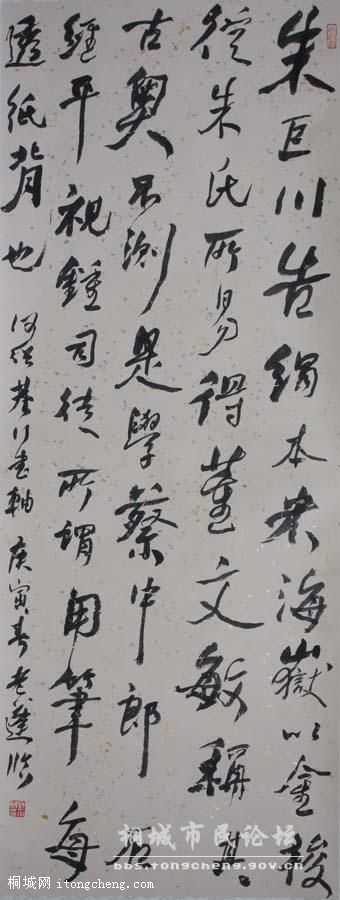 朱巨川告絹本米海嶽以金梭
從朱氏所易得董文敏稱其
古奧不測是學蔡中郎石
經平視鍾司徒所謂用筆每
透紙背也 何紹基行書軸 庚寅春老臨
桐城市民论坛
bbs.tongcheng.gov.cn
桐城网 itongcheng.com